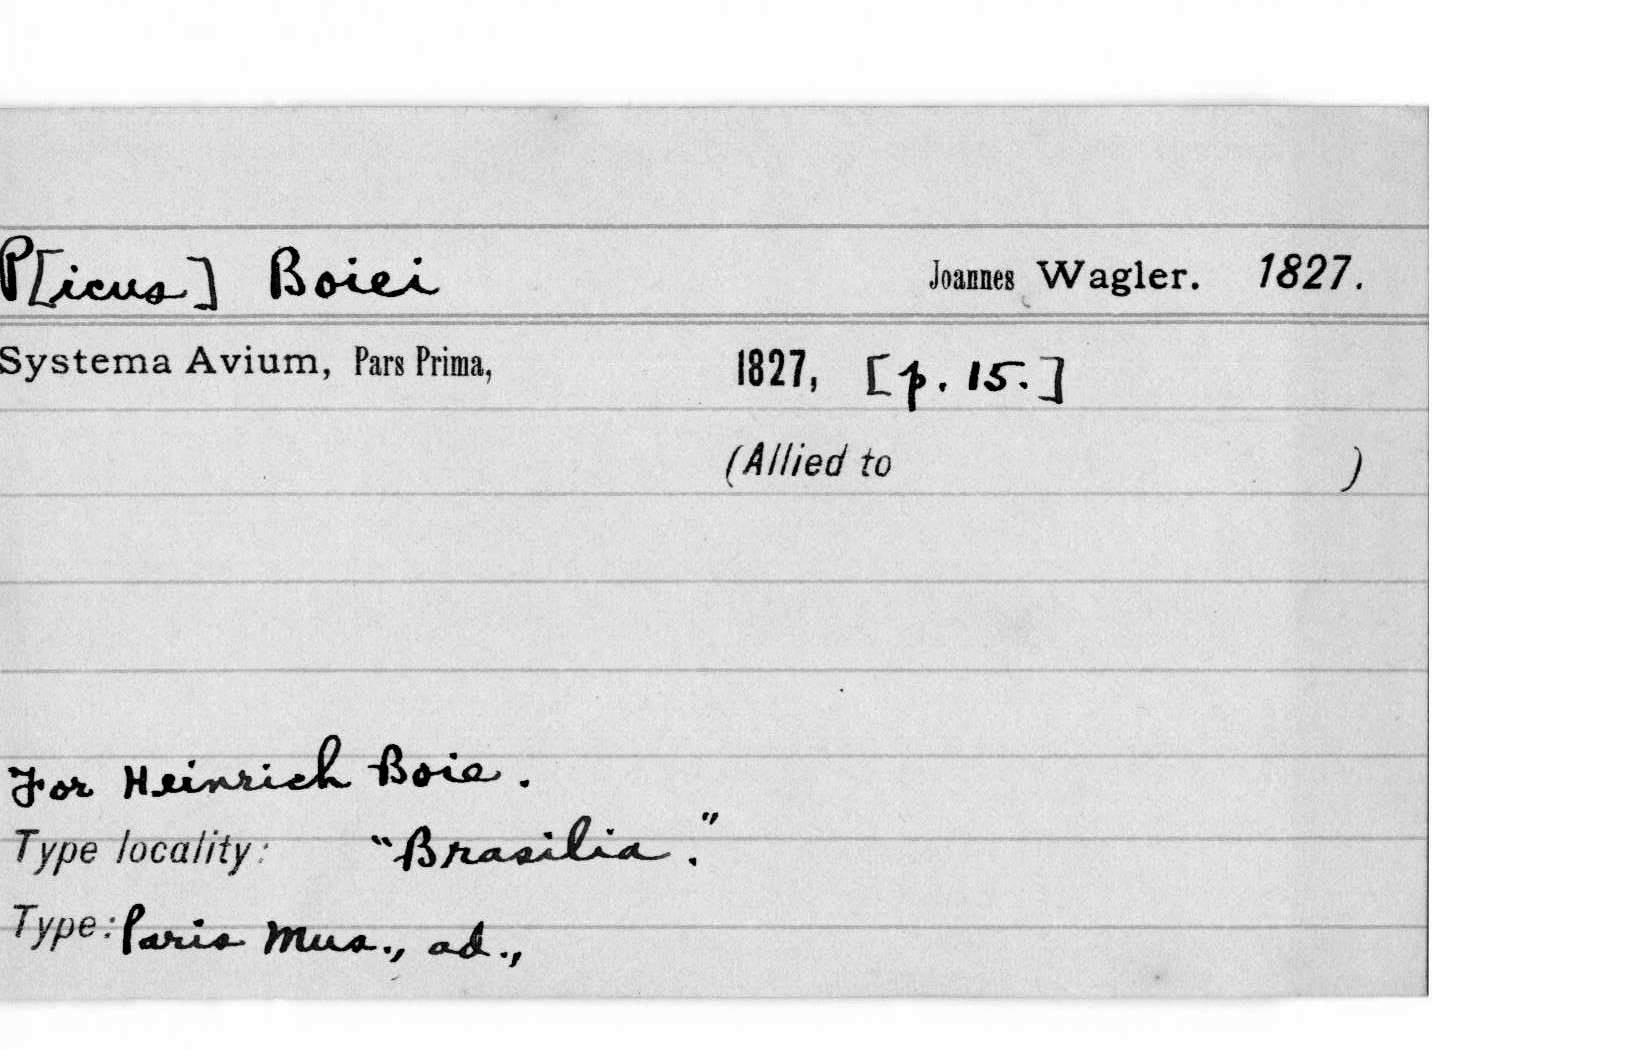 P[icus] Boiei Joannes Wagler. 1827.
Systema Avium, Pars Prima, 1827, [p. 15.]
(Allied to )
For Heinrich Boie.
Type locality: "Brasilia."
Type: Paris Mus., ad.,